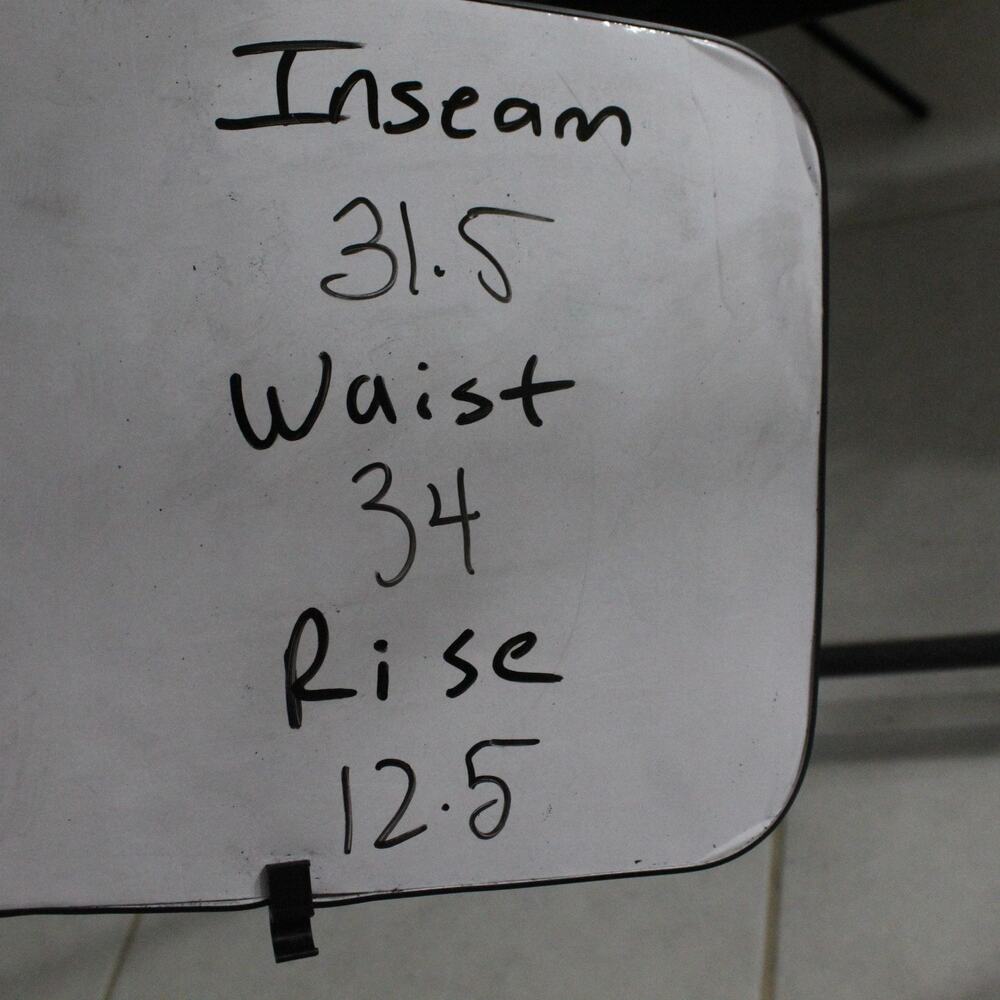 Inseam
31.5
Waist
34
Rise
12.5